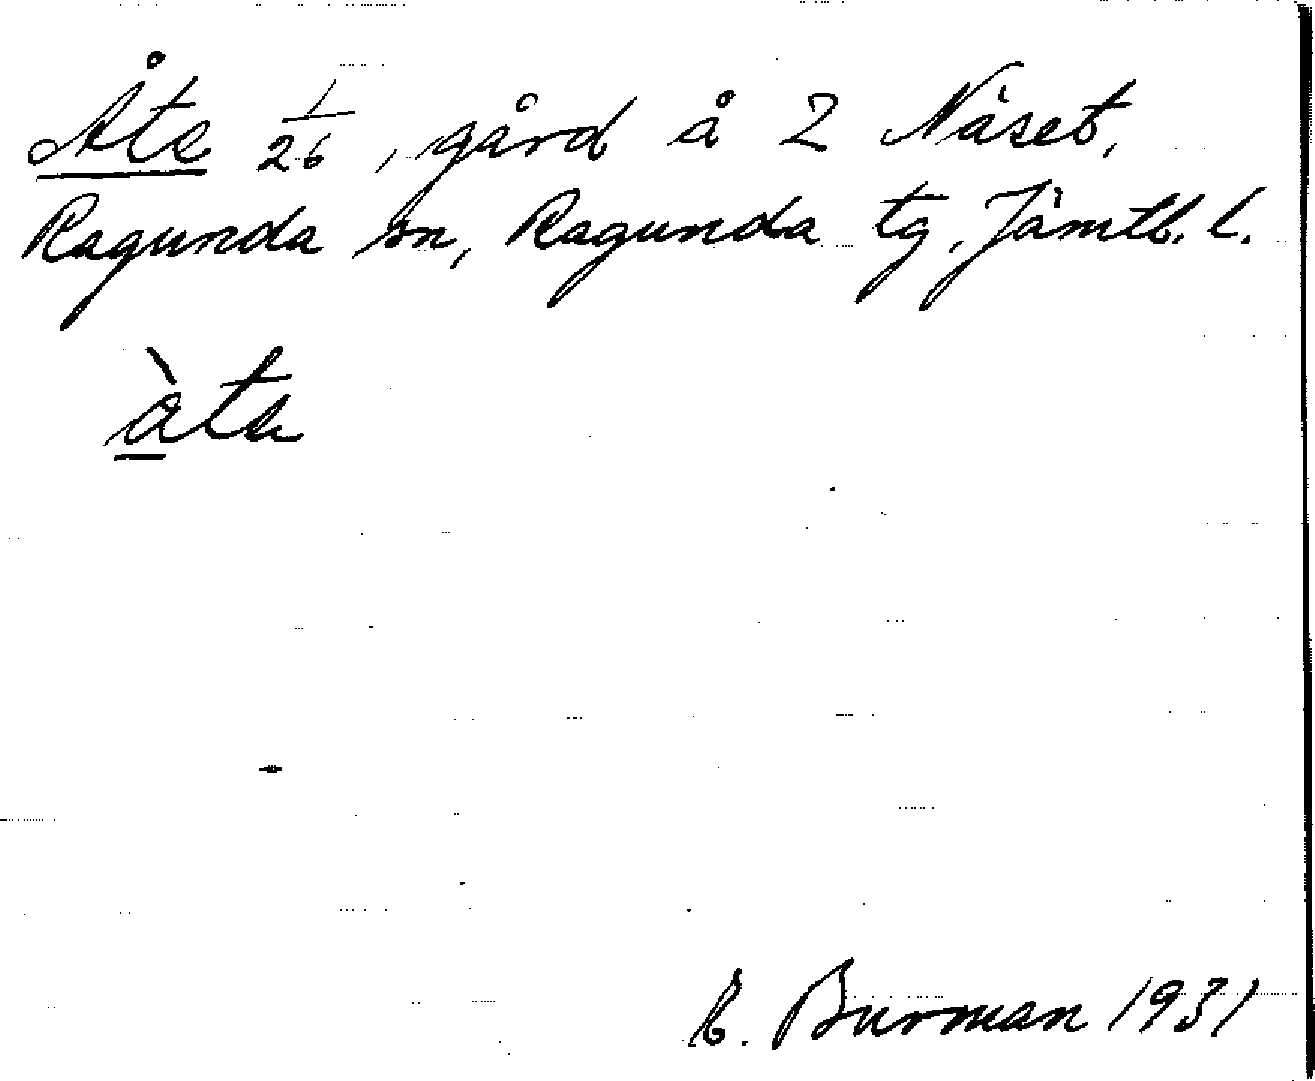 Åte 1/26, gård å 2 Näset,
Ragunda sn, Ragunda tg. Jämtl. l.
àta
E. Burman 1931